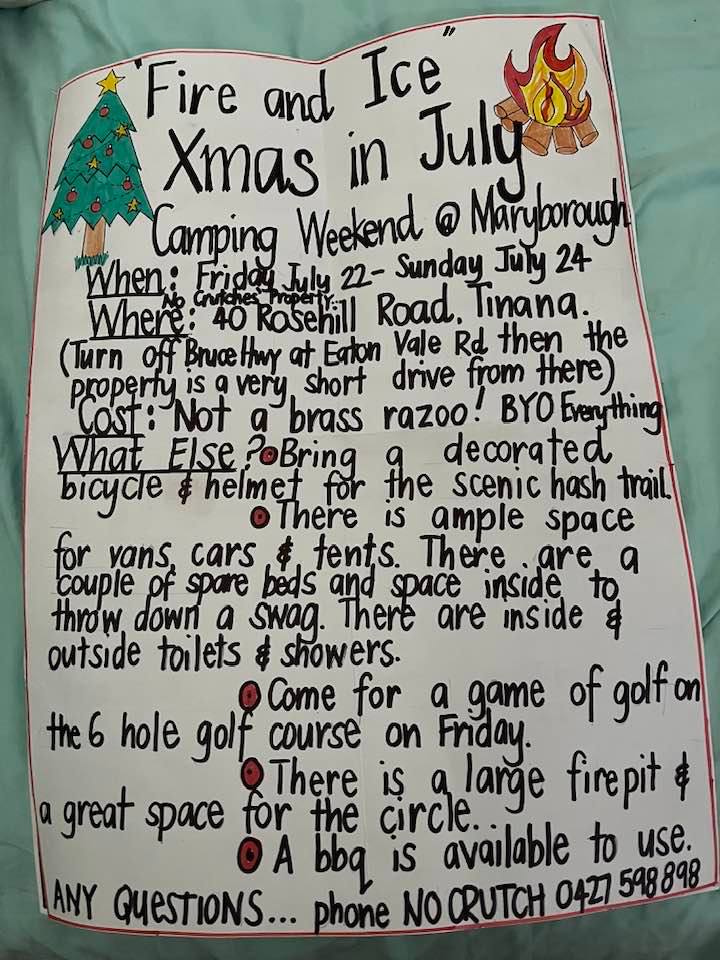 "Fire and Ice"
Xmas in July
Camping Weekend @ Maryborough
When: Friday July 22 - Sunday July 24
No Crutches' Property...
Where: 40 Rosehill Road, Tinana.
(Turn off Bruce Hwy at Eaton Vale Rd then the
property is a very short drive from there)
Cost: Not a brass razoo! BYO Everything
What Else? Bring a decorated
bicycle & helmet for the scenic hash trail.
There is ample space
for vans, cars & tents. There are a
couple of spare beds and space inside to
throw down a swag. There are inside &
outside toilets & showers.
Come for a game of golf on
the 6 hole golf course on Friday.
There is a large firepit &
a great space for the circle...
A bbq is available to use.
ANY QUESTIONS... phone NO CRUTCH 0427 598 898